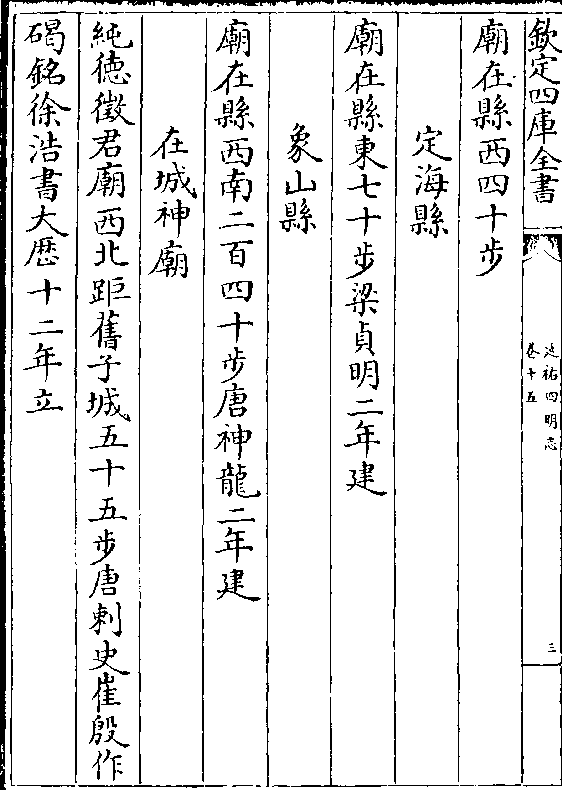 欽定四庫全書
延祐四明志
卷十五
三
廟在縣西四十步
定海縣
廟在縣東七十步梁貞明二年建
象山縣
廟在縣西南二百四十步唐神龍二年建
在城神廟
純徳徵君廟西北距舊子城五十五步唐刺史崔殷作
碣銘徐浩書大厯十二年立